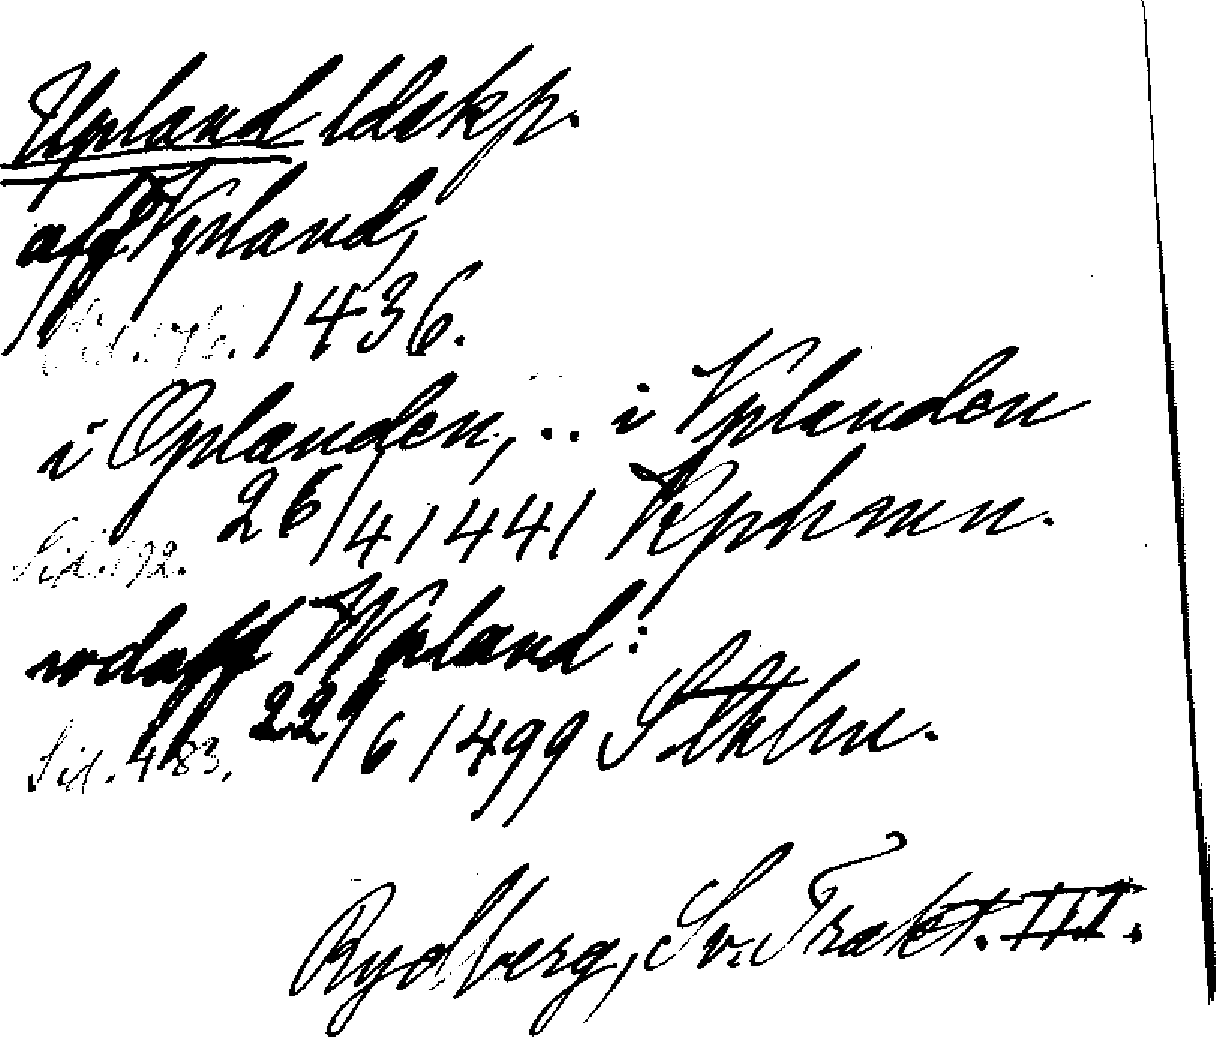 Upland ldskp.
aff Vpland,
Sid. 176. 1436.
i Oplanden, .. i Vplanden
Sid. 192. 26/4 1441 Kphmn.
wdaff Wpland:
Sid. 483. 22/6 1499 Sthlm.
Rydberg, Sv. Trakt. III.